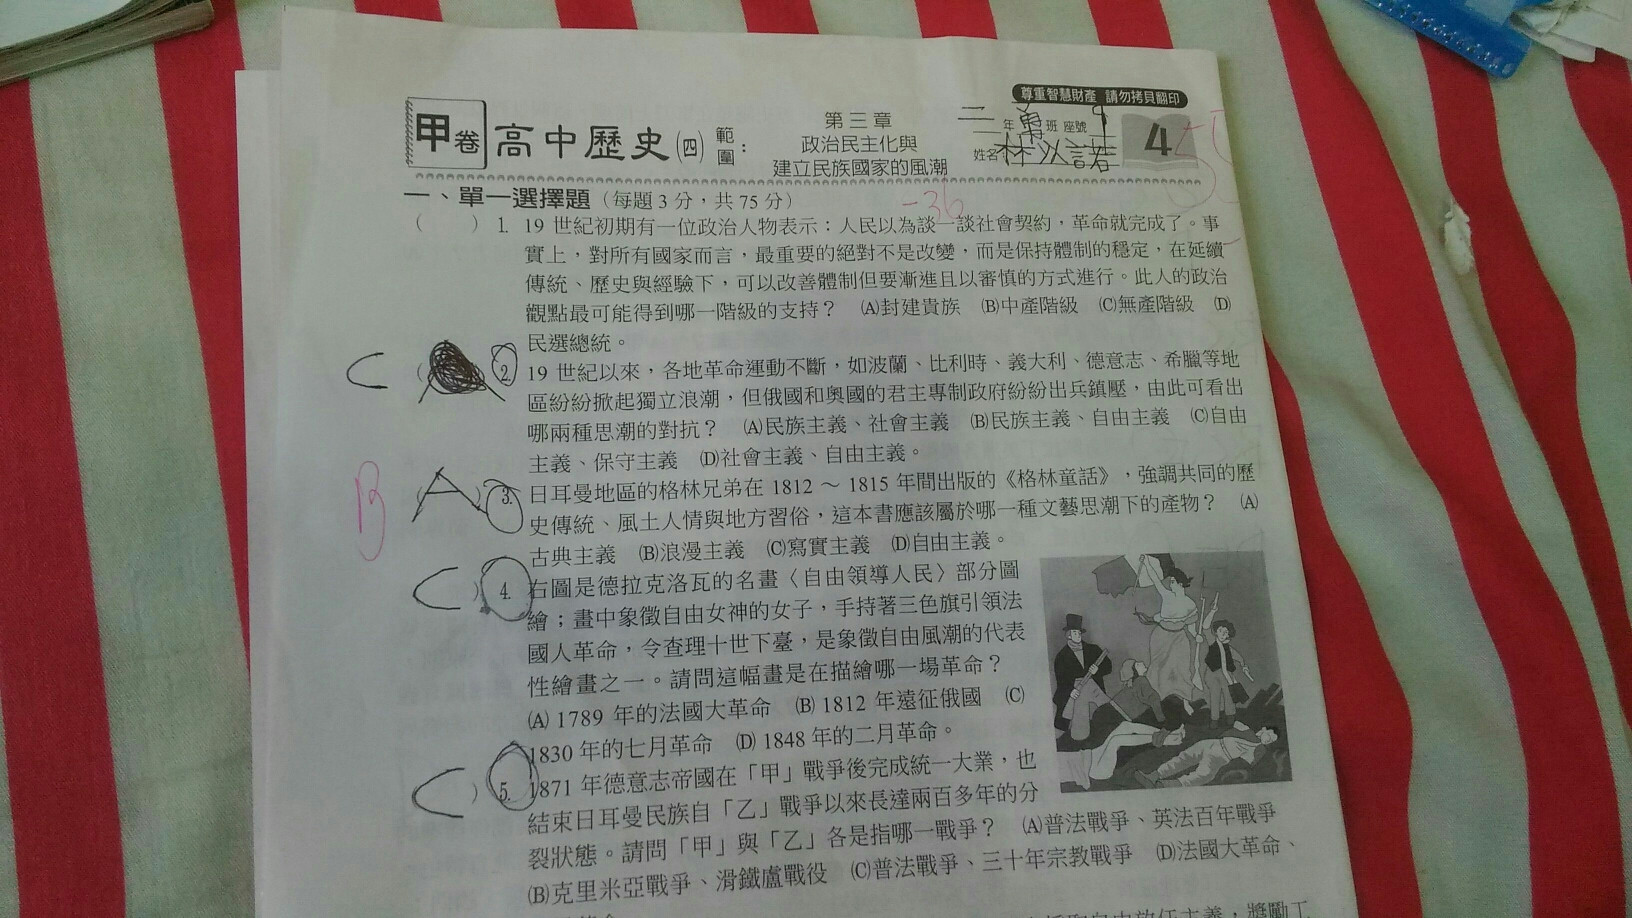 尊重智慧財產 請勿拷貝翻印
甲卷 高中歷史(四) 範圍： 第三章 政治民主化與 建立民族國家的風潮
二年勇班 座號9
姓名 林以諾
4
一、單一選擇題（每題3分，共75分）
-36
（　）1. 19 世紀初期有一位政治人物表示：人民以為談一談社會契約，革命就完成了。事
實上，對所有國家而言，最重要的絕對不是改變，而是保持體制的穩定，在延續
傳統、歷史與經驗下，可以改善體制但要漸進且以審慎的方式進行。此人的政治
觀點最可能得到哪一階級的支持？ (A)封建貴族 (B)中產階級 (C)無產階級 (D)
民選總統。
C（　）2. 19 世紀以來，各地革命運動不斷，如波蘭、比利時、義大利、德意志、希臘等地
區紛紛掀起獨立浪潮，但俄國和奧國的君主專制政府紛紛出兵鎮壓，由此可看出
哪兩種思潮的對抗？ (A)民族主義、社會主義 (B)民族主義、自由主義 (C)自由
主義、保守主義 (D)社會主義、自由主義。
B（A）3. 日耳曼地區的格林兄弟在 1812 ～ 1815 年間出版的《格林童話》，強調共同的歷
史傳統、風土人情與地方習俗，這本書應該屬於哪一種文藝思潮下的產物？ (A)
古典主義 (B)浪漫主義 (C)寫實主義 (D)自由主義。
（C）4. 右圖是德拉克洛瓦的名畫〈自由領導人民〉部分圖
繪；畫中象徵自由女神的女子，手持著三色旗引領法
國人革命，令查理十世下臺，是象徵自由風潮的代表
性繪畫之一。請問這幅畫是在描繪哪一場革命？
(A) 1789 年的法國大革命 (B) 1812 年遠征俄國 (C)
1830 年的七月革命 (D) 1848 年的二月革命。
（C）5. 1871 年德意志帝國在「甲」戰爭後完成統一大業，也
結束日耳曼民族自「乙」戰爭以來長達兩百多年的分
裂狀態。請問「甲」與「乙」各是指哪一戰爭？ (A)普法戰爭、英法百年戰爭
(B)克里米亞戰爭、滑鐵盧戰役 (C)普法戰爭、三十年宗教戰爭 (D)法國大革命、